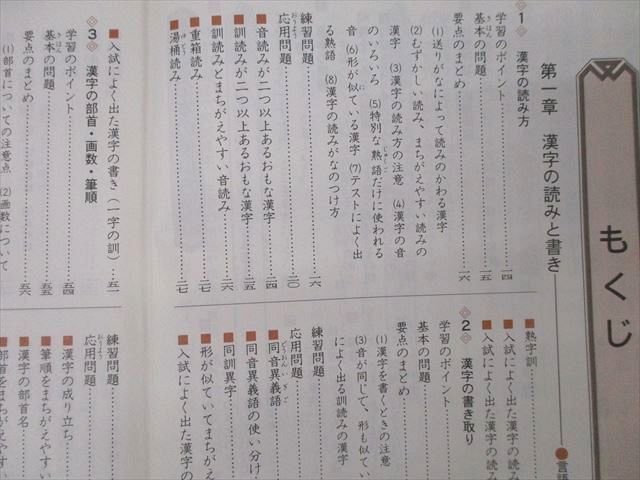 もくじ
第一章　漢字の読みと書き
●言語
1　漢字の読み方
学習のポイント……一四
基本の問題……一五
要点のまとめ……一六
(1)送りがなによって読みのかわる漢字
(2)むずかしい読み、まちがえやすい読みの
漢字　(3)漢字の読み方の注意　(4)漢字の音
のいろいろ　(5)特別な熟語だけに使われる
音　(6)形が似ている漢字　(7)テストによく出
る熟語　(8)漢字の読みがなのつけ方
練習問題……一六
応用問題……二〇
■音読みが二つ以上あるおもな漢字……二四
■訓読みが二つ以上あるおもな漢字……二五
■訓読みとまちがえやすい音読み……二六
■重箱読み……二七
■湯桶読み……二七
■熟字訓
■入試によく出た漢字の読み
■入試によく出た漢字の読み
2　漢字の書き取り
学習のポイント
基本の問題
要点のまとめ
(1)漢字を書くときの注意
(3)音が同じで、形も似てい
によく出る訓読みの漢字
練習問題
応用問題
■同音異義語
■同音異義語の使い分け
■同訓異字
■形が似ていてまちがえ
■入試によく出た漢字の
■入試によく出た漢字の書き（一字の訓）……五一
3　漢字の部首・画数・筆順
学習のポイント……五四
基本の問題……五五
要点のまとめ……五六
(1)部首についての注意点　(2)画数について
練習問題
応用問題
■漢字の成り立ち
■筆順をまちがえやす
■漢字の部首名
■部首をまちがえやす